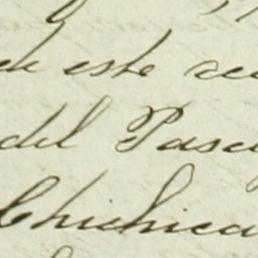 de este
del Pasc
Chichica